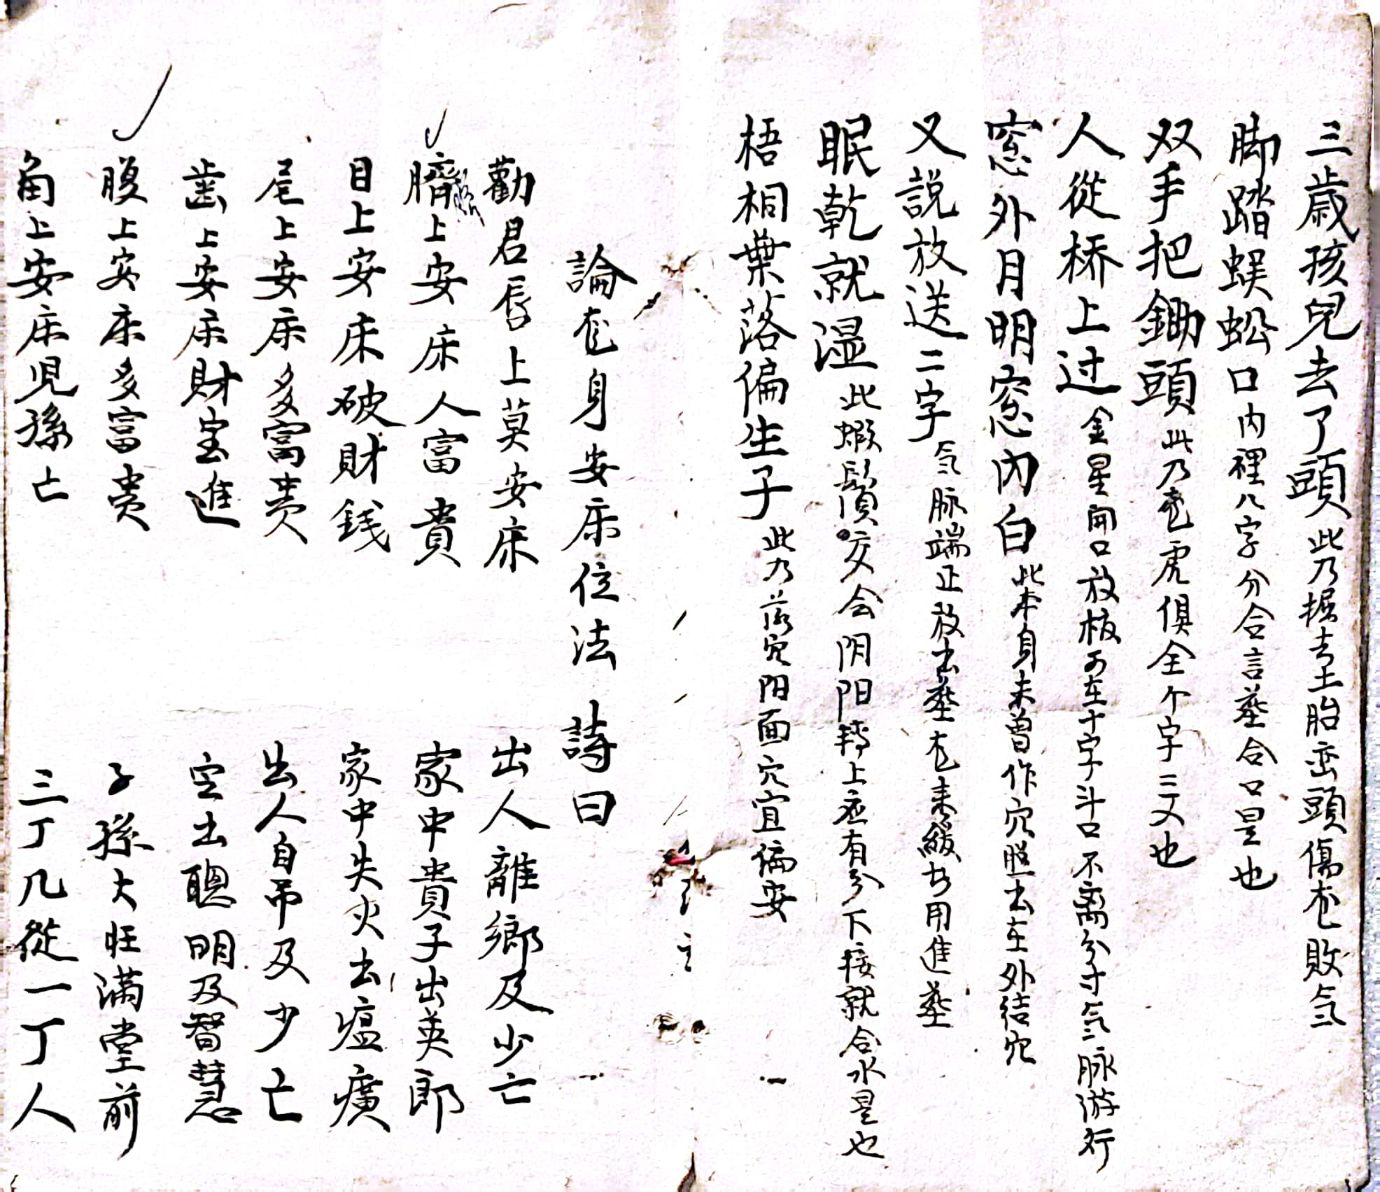 三歳孩兒去了頭 此乃掘去土胎巒頭傷龙敗气
脚踏蜈蚣口 内裡八字分合言塟合口是也
双手把鋤頭 此乃龙虎俱全个字三叉也
人從桥上过 金星開口放棺可在十字斗口不离分寸气脉游行
窓外月明窓内白 此本身未曾作穴脱去在外結穴
又説放送二字 气脉端正放出塟龙来緩女用進塟
眠乾就湿 此蝦鬚交会阴阳轉上应有分下接就合水是也
梧桐葉落偏生子 此乃落穴阳面穴宜偏安
論龙身安床位法 詩曰
勸君唇上莫安床 出人離鄉及少亡
臍上安床人富貴 家中貴子出英郎
目上安床破財銭 家中失火出瘟㾠
尾上安床多富贵 出人自吊及少亡
齒上安床財宝進 定出聰明及智慧
腹上安床多富贵 子孫大旺滿堂前
角上安床児孫亡 三丁几從一丁人